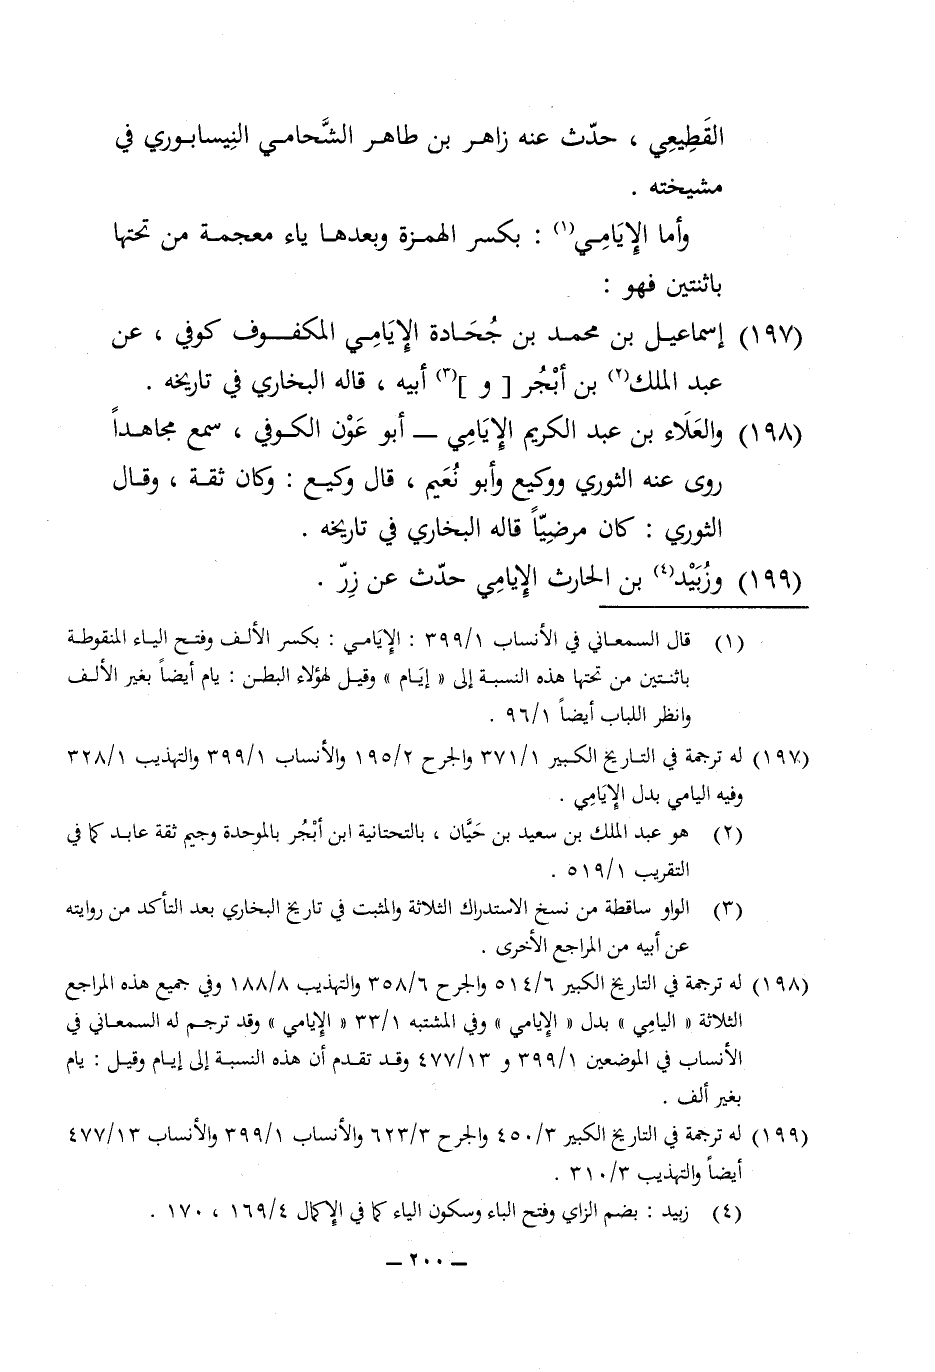 القَطِيعِي ، حدّث عنه زاهر بن طاهر الشَّحامي النِيسابوري في
مشيخته .
وأما الإِيَامِي(١) : بكسر الهمزة وبعدها ياء معجمة من تحتها
باثنتين فهو :
(١٩٧) إسماعيل بن محمد بن جُحَادة الإِيَامِي المكفوف كوفي ، عن
عبد الملك(٢) بن أَبْجُر [ و ](٣) أبيه ، قاله البخاري في تاريخه .
(١٩٨) والعَلَاء بن عبد الكريم الإِيَامِي — أبو عَوْن الكوفي ، سمع مجاهداً
روى عنه الثوري ووكيع وأبو نُعَيم ، قال وكيع : وكان ثقة ، وقال
الثوري : كان مرضِيّاً قاله البخاري في تاريخه .
(١٩٩) وزُبَيْد(٤) بن الحارث الإِيامِي حدّث عن زِرّ .
(١) قال السمعاني في الأنساب ٣٩٩/١ : الإِيَامي : بكسر الألف وفتح الياء المنقوطة
باثنتين من تحتها هذه النسبة إلى « إيَام » وقيل لهؤلاء البطن : يام أيضاً بغير الألف
وانظر اللباب أيضاً ٩٦/١ .
(١٩٧) له ترجمة في التاريخ الكبير ٣٧١/١ والجرح ١٩٥/٢ والأنساب ٣٩٩/١ والتهذيب ٣٢٨/١
وفيه اليامي بدل الإِيَامِي .
(٢) هو عبد الملك بن سعيد بن حَيَّان ، بالتحتانية ابن أَبْجُر بالموحدة وجيم ثقة عابد كما في
التقريب ٥١٩/١ .
(٣) الواو ساقطة من نسخ الاستدراك الثلاثة والمثبت في تاريخ البخاري بعد التأكد من روايته
عن أبيه من المراجع الأخرى .
(١٩٨) له ترجمة في التاريخ الكبير ٥١٤/٦ والجرح ٣٥٨/٦ والتهذيب ١٨٨/٨ وفي جميع هذه المراجع
الثلاثة « اليامِي » بدل « الإيامي » وفي المشتبه ٣٣/١ « الإيامي » وقد ترجم له السمعاني في
الأنساب في الموضعين ٣٩٩/١ و ٤٧٧/١٣ وقد تقدم أن هذه النسبة إلى إيام وقيل : يام
بغير ألف .
(١٩٩) له ترجمة في التاريخ الكبير ٤٥٠/٣ والجرح ٦٢٣/٣ والأنساب ٣٩٩/١ والأنساب ٤٧٧/١٣
أيضاً والتهذيب ٣١٠/٣ .
(٤) زبيد : بضم الزاي وفتح الباء وسكون الياء كما في الإكمال ١٦٩/٤ ، ١٧٠ .
— ٢٠٠ —